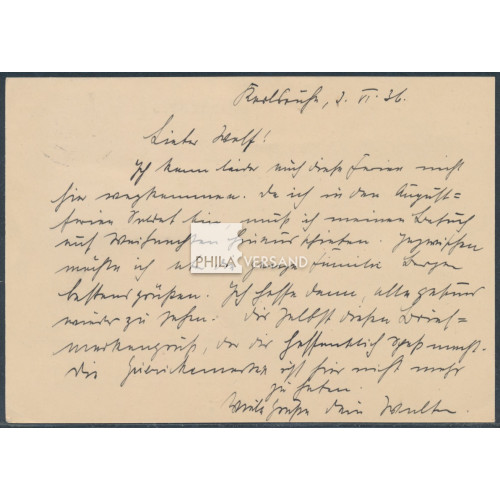 Karlsruhe, 2. VI. 36.
Lieber Wolf!
Ich kann leider auch diese Ferien nicht
hier wegkommen. Da ich in den August-
ferien Soldat bin muß ich meinen Besuch
auf Weihnachten hinausschieben. Inzwischen
möchte ich ganze Familie Berger
bestens grüßen. Ich hoffe dann, alle gesund
wieder zu sehen. Dir selbst diesen Brief-
markengruß, der dir hoffentlich Spaß macht.
Die ist hier nicht mehr
zu haben.
Viele Grüße dein Walter.
PHILA VERSAND